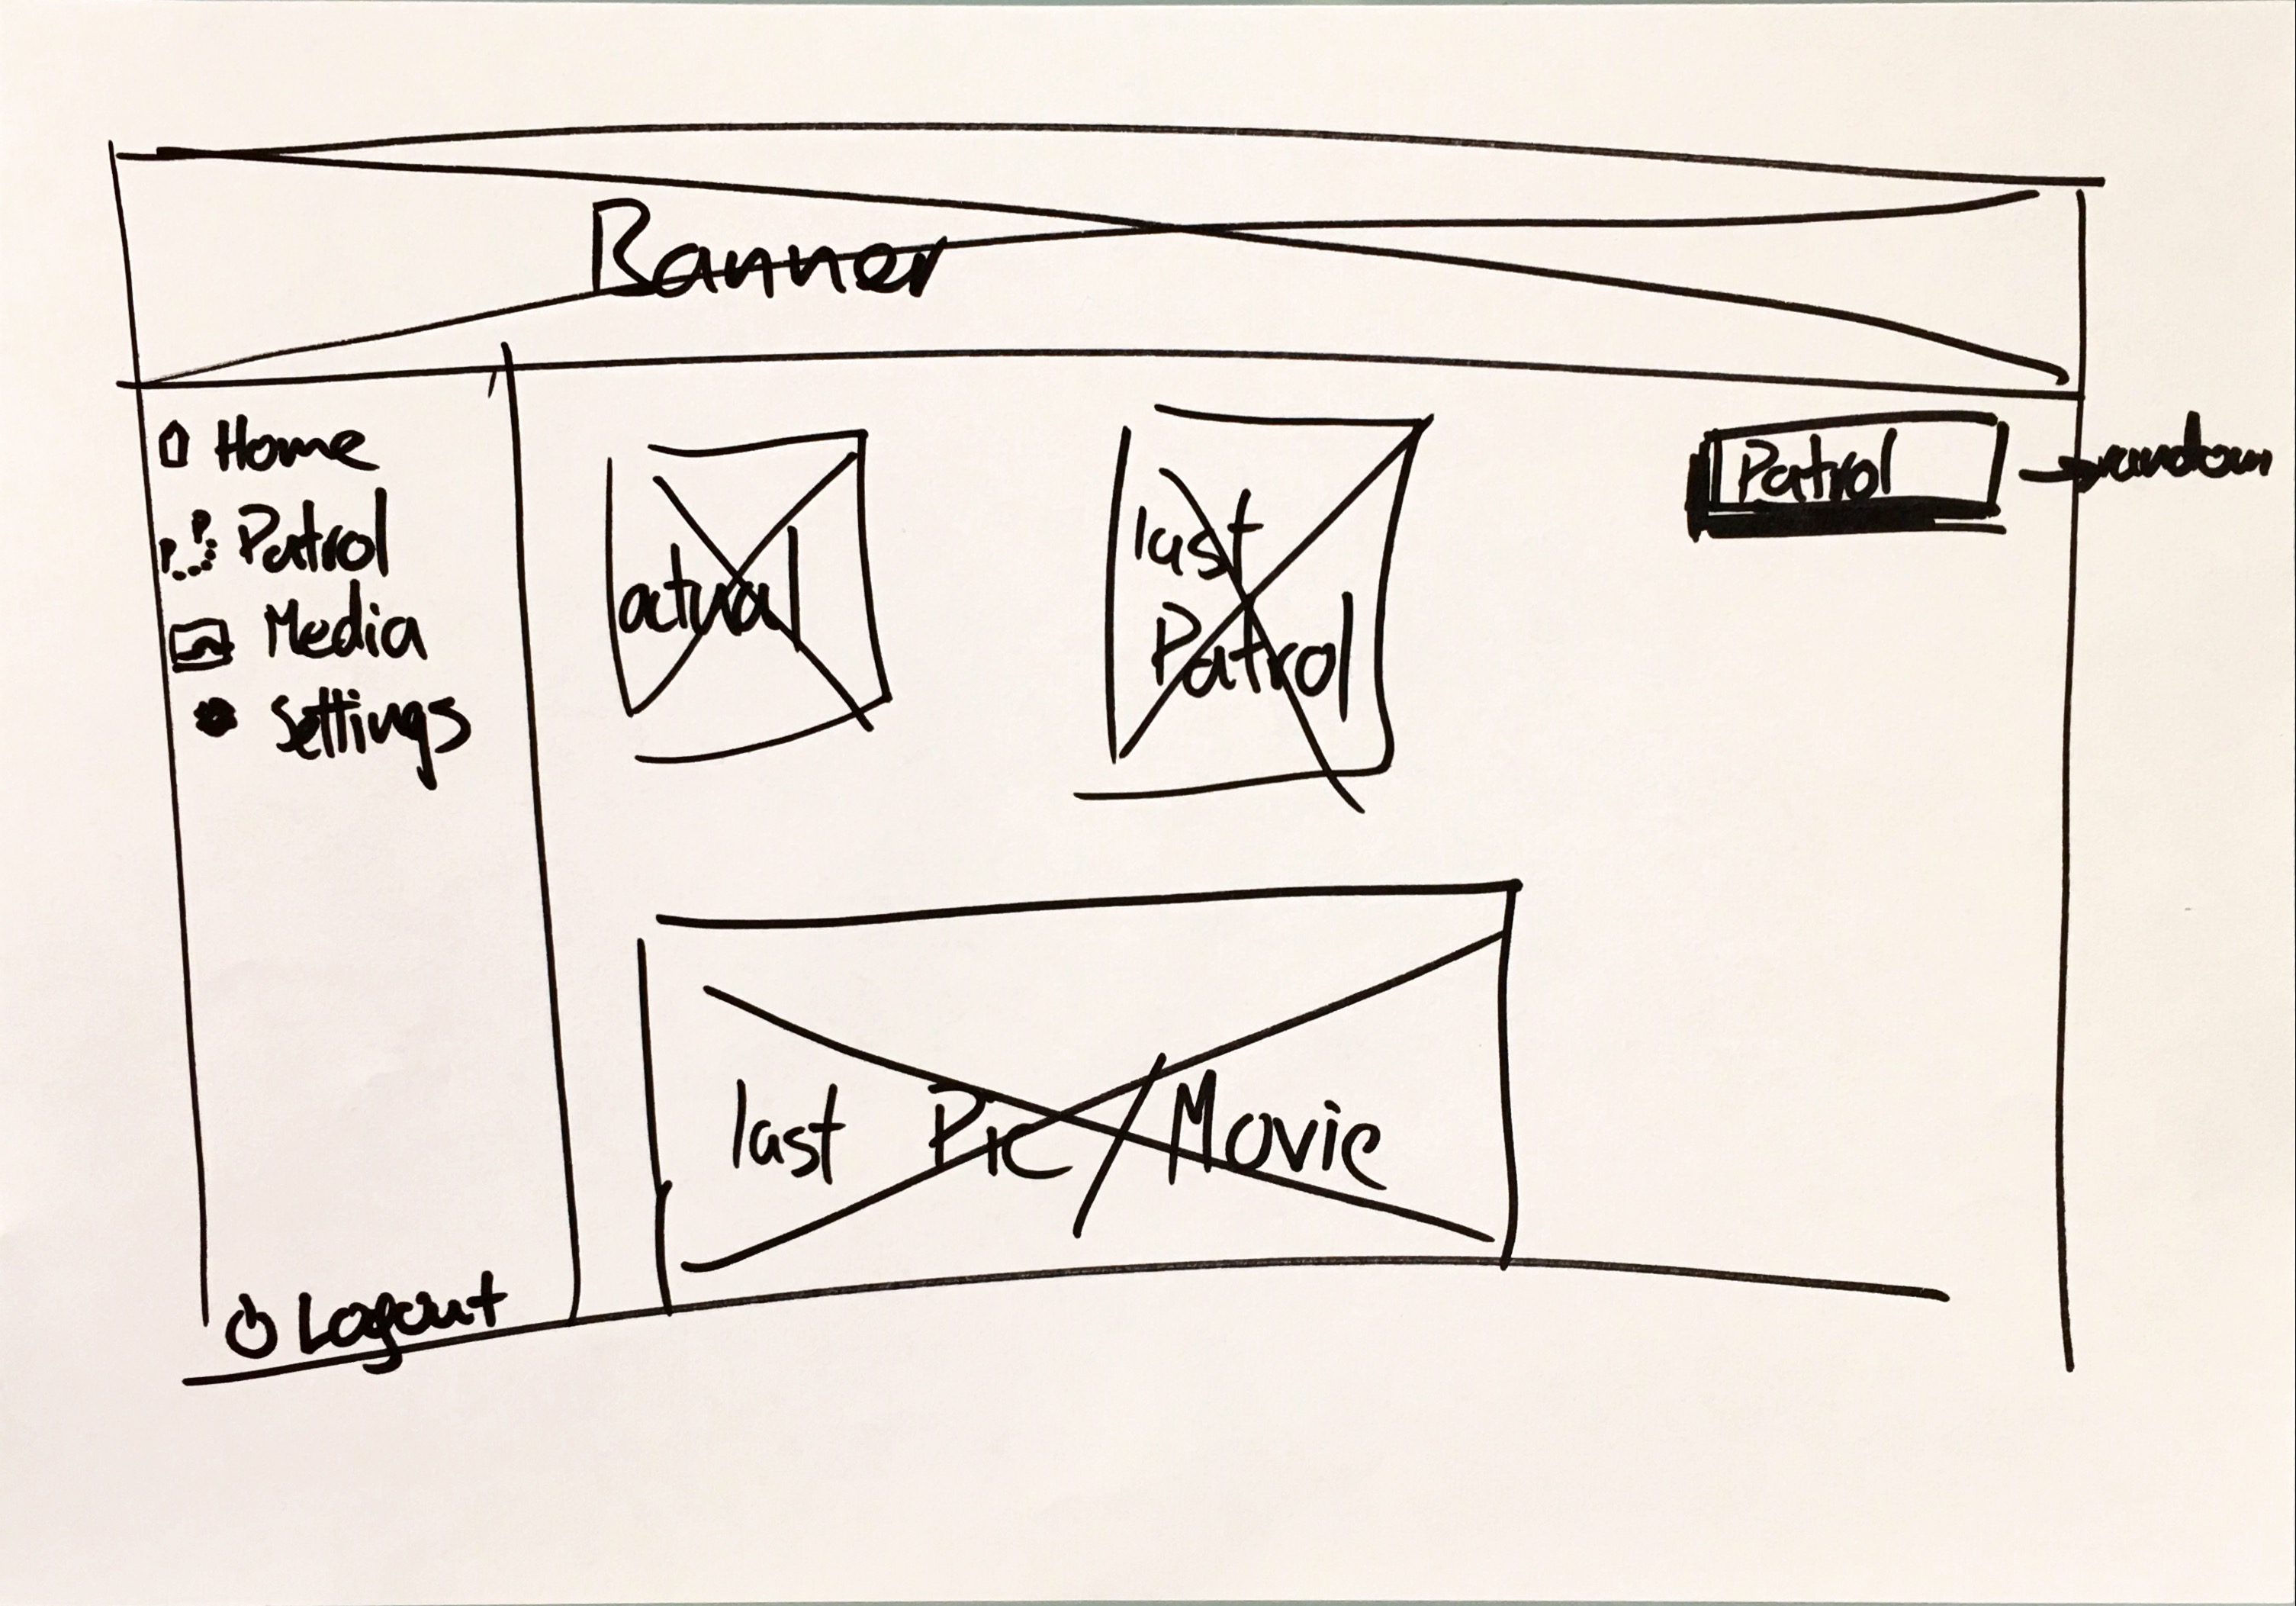 Banner
Home
Patrol
Media
Settings
Logout
actual
last
Patrol
Patrol
random
last Pic / Movie